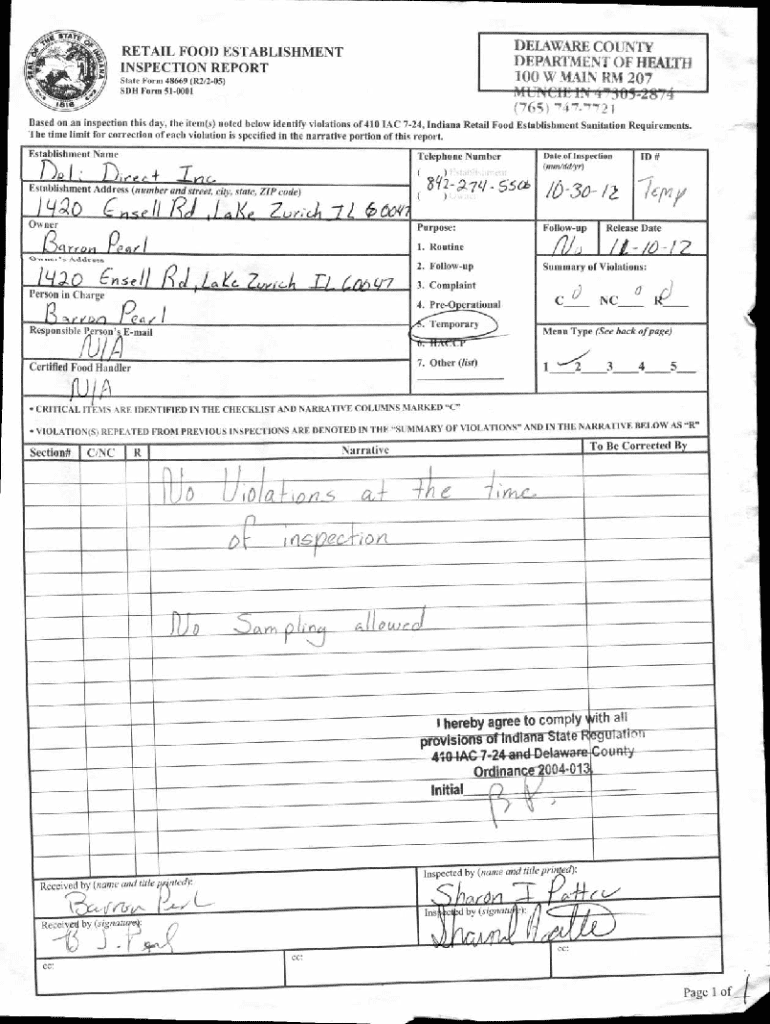 RETAIL FOOD ESTABLISHMENT
INSPECTION REPORT
State Form 48669 (R2/2-05)
SDH Form 51-0001
SEAL OF THE STATE OF INDIANA
1816
DELAWARE COUNTY
DEPARTMENT OF HEALTH
100 W MAIN RM 207
MUNCIE IN 47305-2874
(765) 747-7721
Based on an inspection this day, the item(s) noted below identify violations of 410 IAC 7-24, Indiana Retail Food Establishment Sanitation Requirements.
The time limit for correction of each violation is specified in the narrative portion of this report.
Establishment Name
Deli Direct Inc
Telephone Number
( ) Establishment
842-274-5506
( )
Date of Inspection
(mm/dd/yr)
10-30-12
ID #
Temp
Establishment Address (number and street, city, state, ZIP code)
1420 Ensell Rd, Lake Zurich IL 60047
Owner
Barron Pearl
Purpose:
Follow-up
No
Release Date
11-10-12
Owner's Address
1420 Ensell Rd, Lake Zurich IL 60047
1. Routine
2. Follow-up
3. Complaint
4. Pre-Operational
5. Temporary
6. HACCP
7. Other (list)
Summary of Violations:
C 0 NC 0 R 0
Person in Charge
Barron Pearl
Menu Type (See back of page)
1 2 3 4 5
Responsible Person's E-mail
N/A
Certified Food Handler
N/A
• CRITICAL ITEMS ARE IDENTIFIED IN THE CHECKLIST AND NARRATIVE COLUMNS MARKED "C"
• VIOLATION(S) REPEATED FROM PREVIOUS INSPECTIONS ARE DENOTED IN THE "SUMMARY OF VIOLATIONS" AND IN THE NARRATIVE BELOW AS "R"
Section# C/NC R Narrative To Be Corrected By
No Violations at the time
of inspection
No Sampling allowed
I hereby agree to comply with all
provisions of Indiana State Regulation
410 IAC 7-24 and Delaware County
Ordinance 2004-013
Initial B P.
Received by (name and title printed):
Barron Perl
Inspected by (name and title printed):
Sharon I Pattee
Received by (signature):
B J. Pearl
Inspected by (signature):
cc:
cc:
cc:
Page 1 of 1